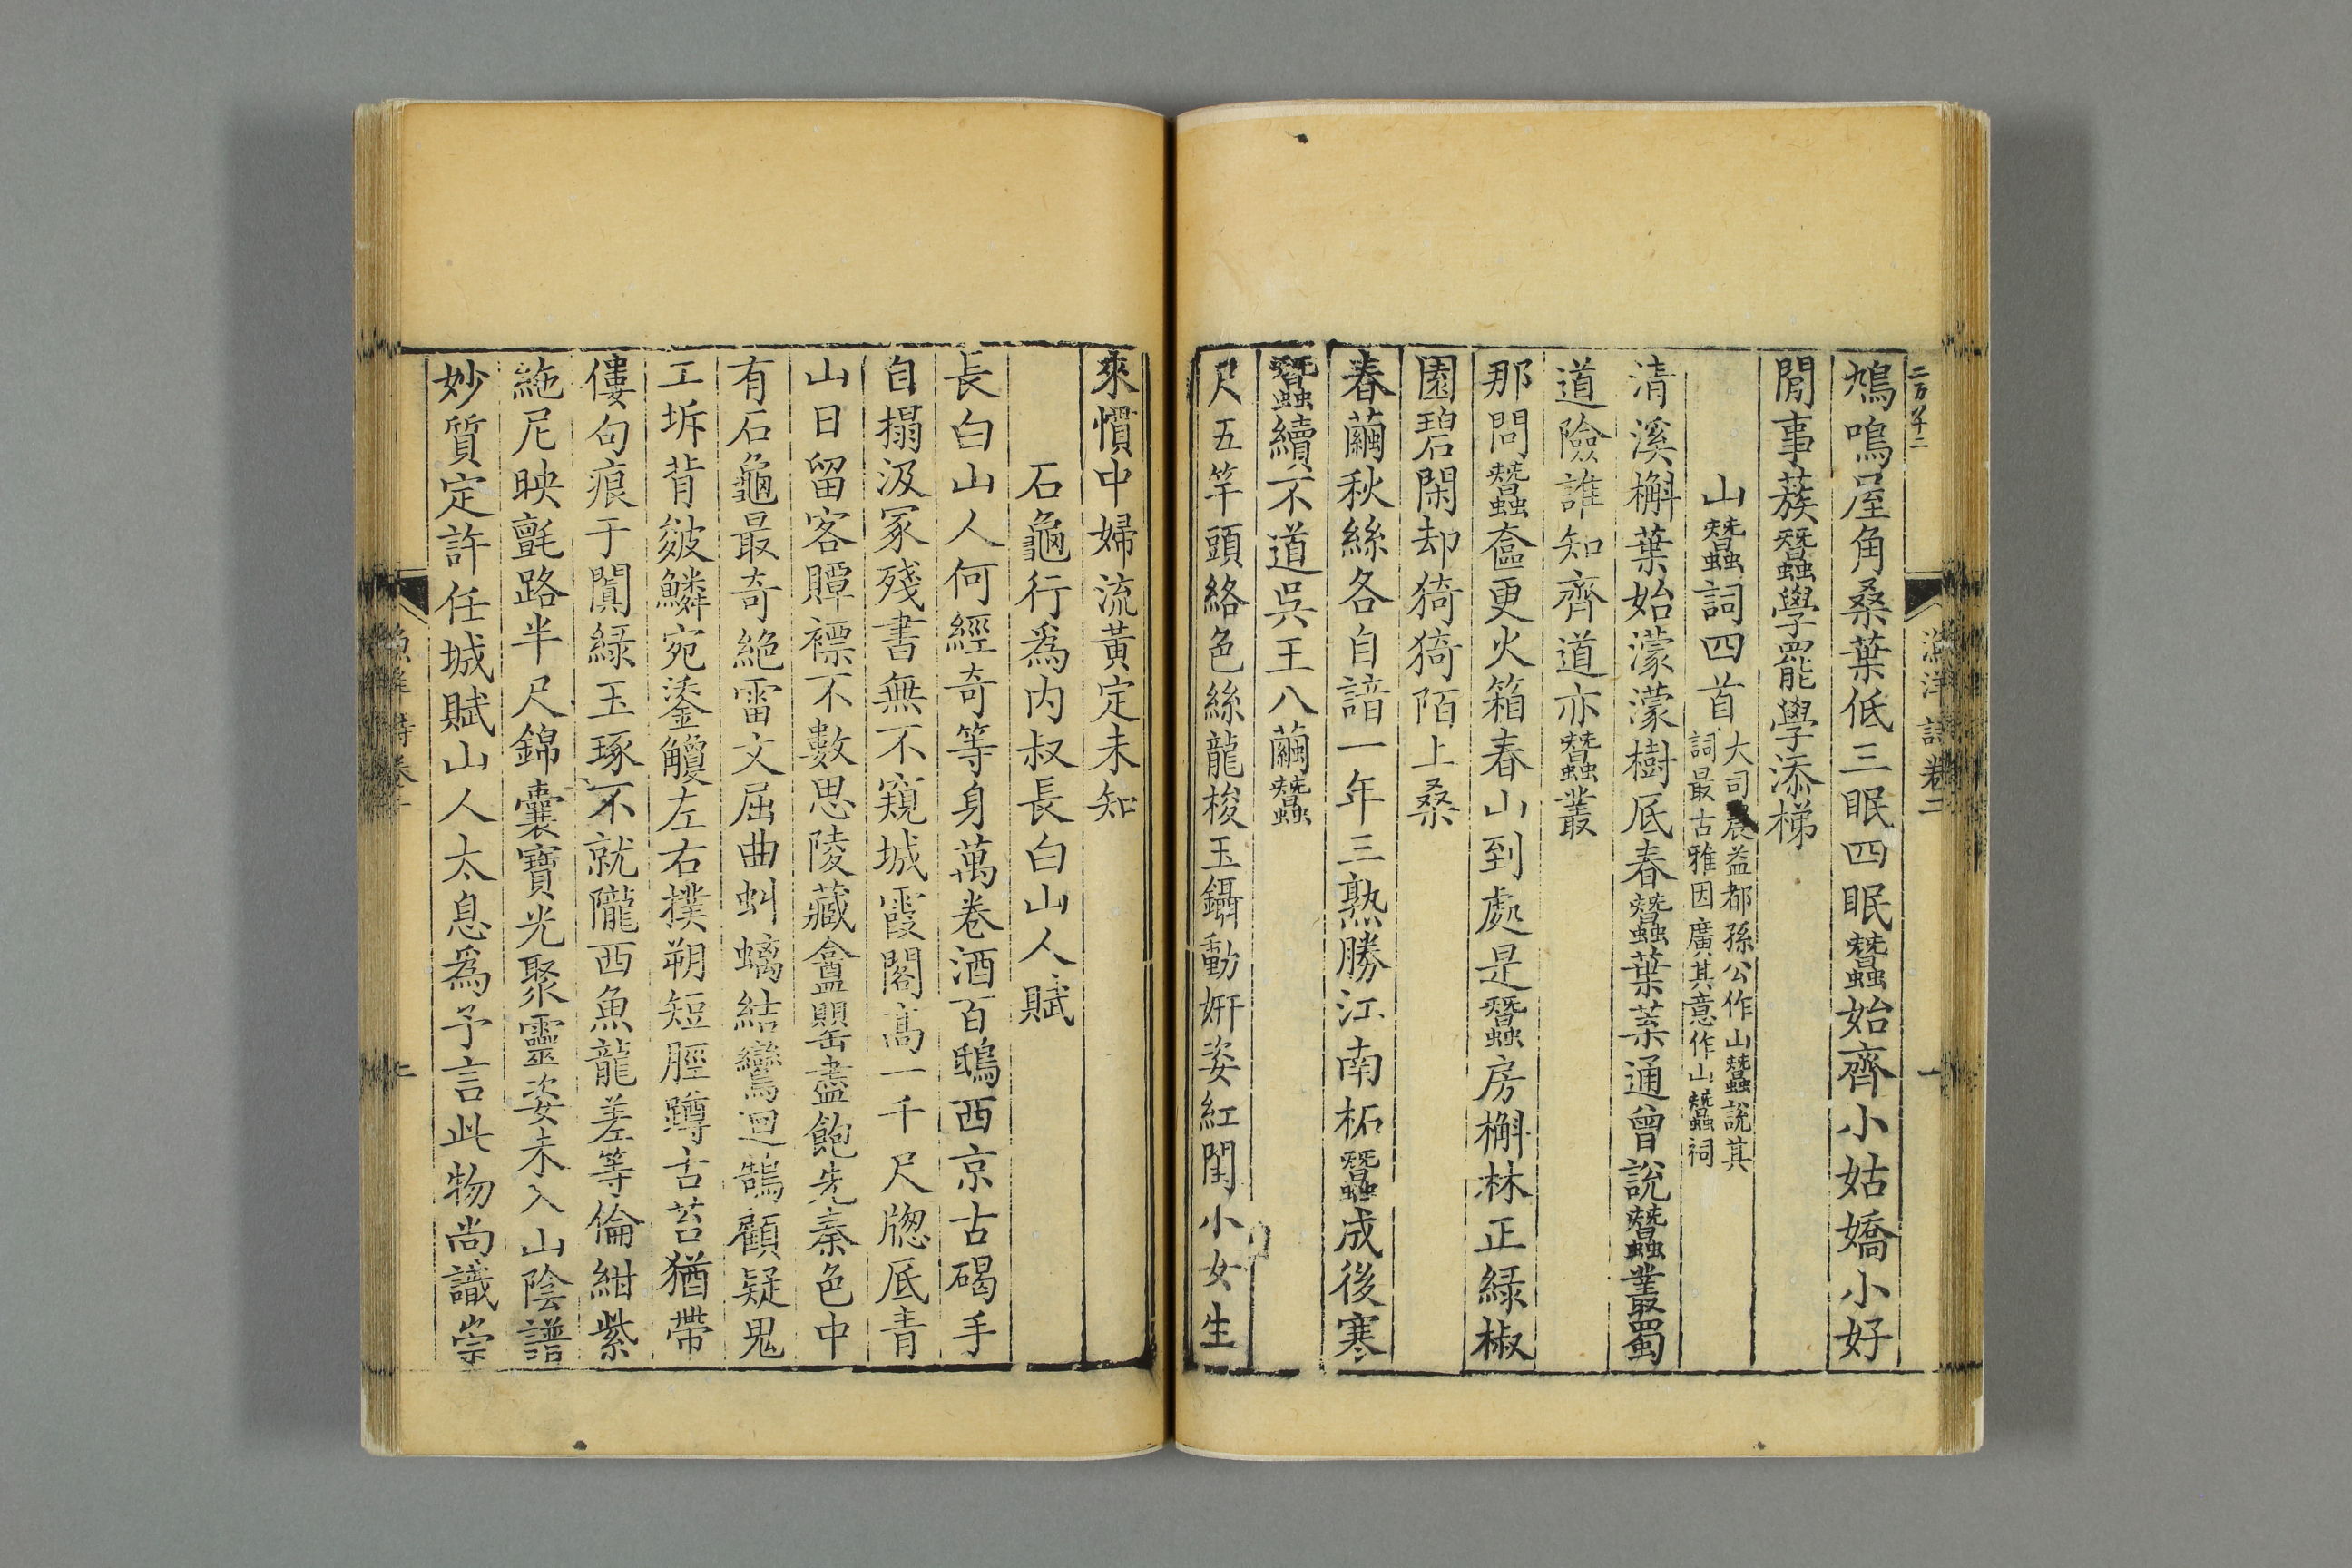 漁洋詩卷二
一
鳩鳴屋角桑葉低三眠四眠蠶始齊小姑嬌小好
閒事蔟蠶學罷學添梯
山蠶詞四首
大司農益都孫公作山蠶說其
詞最古雅因廣其意作山蠶祠
清溪槲葉始濛濛樹底春蠶葉葉通曾說蠶叢蜀
道險誰知齊道亦蠶叢
那問蠶奩更火箱春山到處是蠶房槲林正綠椒
園碧閑却猗猗陌上桑
春繭秋絲各自諳一年三熟勝江南柘蠶成後寒
蠶續不道吳王八繭蠶
尺五竿頭絡色絲龍梭玉鑷動妍姿紅閨小女生
來慣中婦流黃定未知
石龜行爲内叔長白山人賦
長白山人何經奇等身萬卷酒百鴟西京古碣手
自搨汲冢殘書無不窺城霞閣高一千尺牎底青
山日留客贉褾不數思陵藏龕罌盡飽先秦色中
有石龜最奇絶雷文屈曲虯螭結鸞迴鵠顧疑鬼
工坼背皴鱗宛鋈觼左右撲朔短脛蹲古苔猶帶
僂句痕于闐綠玉琢不就隴西魚龍差等倫紺紫
絁尼映氈路半尺錦囊寶光聚靈姿未入山陰譜
妙質定許任城賦山人太息爲予言此物尚識崇